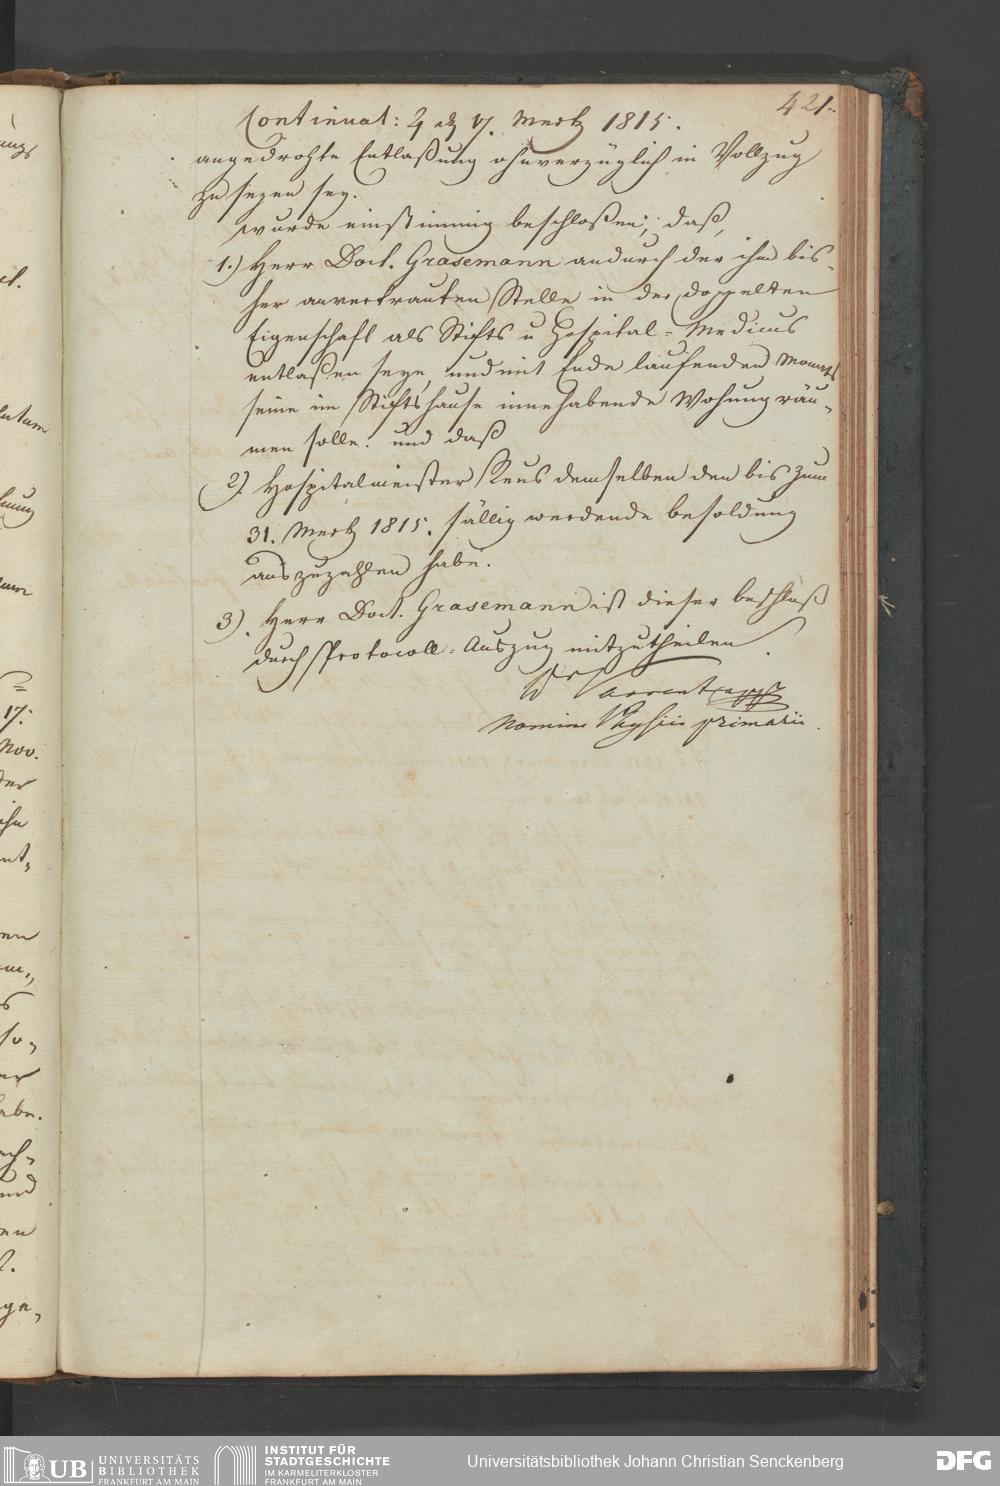 421.
Continuat: ♃ d 17. Mertz 1815.
angedrohte Entlaßung ohnverzüglich in Vollzug
zu sezen sey.
wurde einstimmig beschloßen, daß,
1.) Herr Doct. Grasemann andurch der ihm bis-
her anvertrauten Stelle in der doppelten
Eigenschaft als Stifts u Hospital-Medicus
entlaßen seye, und mit Ende laufenden Monats
seine im Stiftshause innehabende Wohnung räu-
men solle. und daß
2.) Hospitalmeister Reus demselben den bis zum
31. Mertz 1815. fällig werdende besoldung
auszuzahlen habe.
3.) Herr Doct. Grasemann ist dieser beschluß
durch Protocoll-Auszug mitzutheilen.
Dr Varrentrapp
Nomine Physici primarii.
UB UNIVERSITÄTS
BIBLIOTHEK
FRANKFURT AM MAIN
INSTITUT FÜR
STADTGESCHICHTE
IM KARMELITERKLOSTER
FRANKFURT AM MAIN
Universitätsbibliothek Johann Christian Senckenberg
DFG